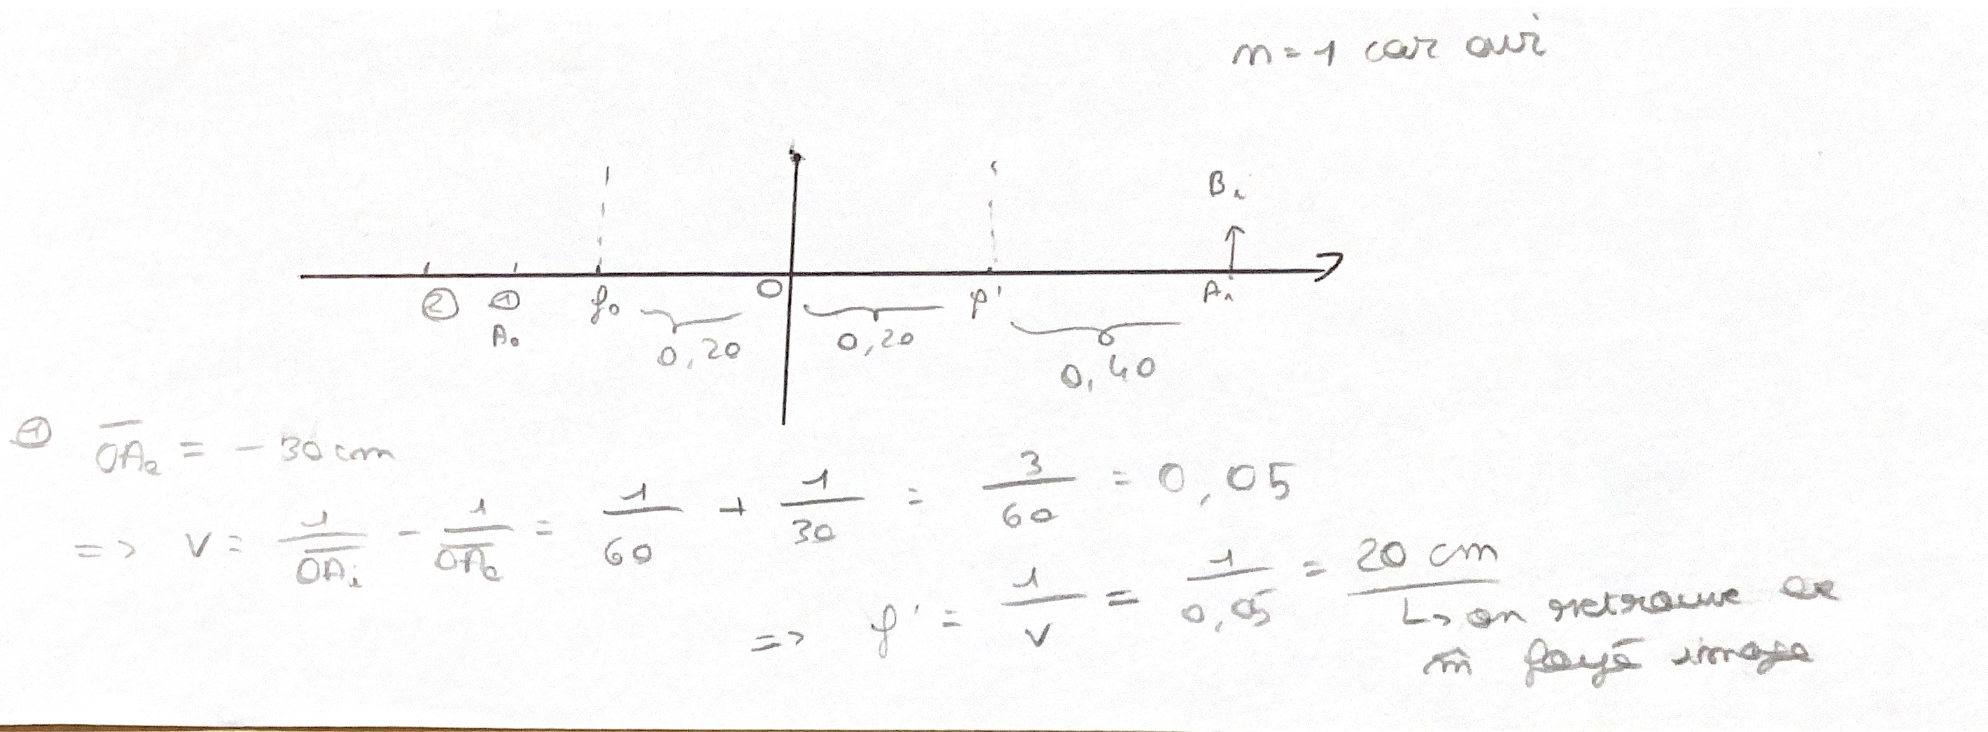 n = 1 car air
B₁
② ① f₀ O f' A₁
A₀
0,20 0,20 0,40
① OA₀ = - 30 cm
=> V = 1/OA₁ - 1/OA₀ = 1/60 + 1/30 = 3/60 = 0,05
=> f' = 1/V = 1/0,05 = 20 cm
↳ on retrouve le
m̂ foyé image